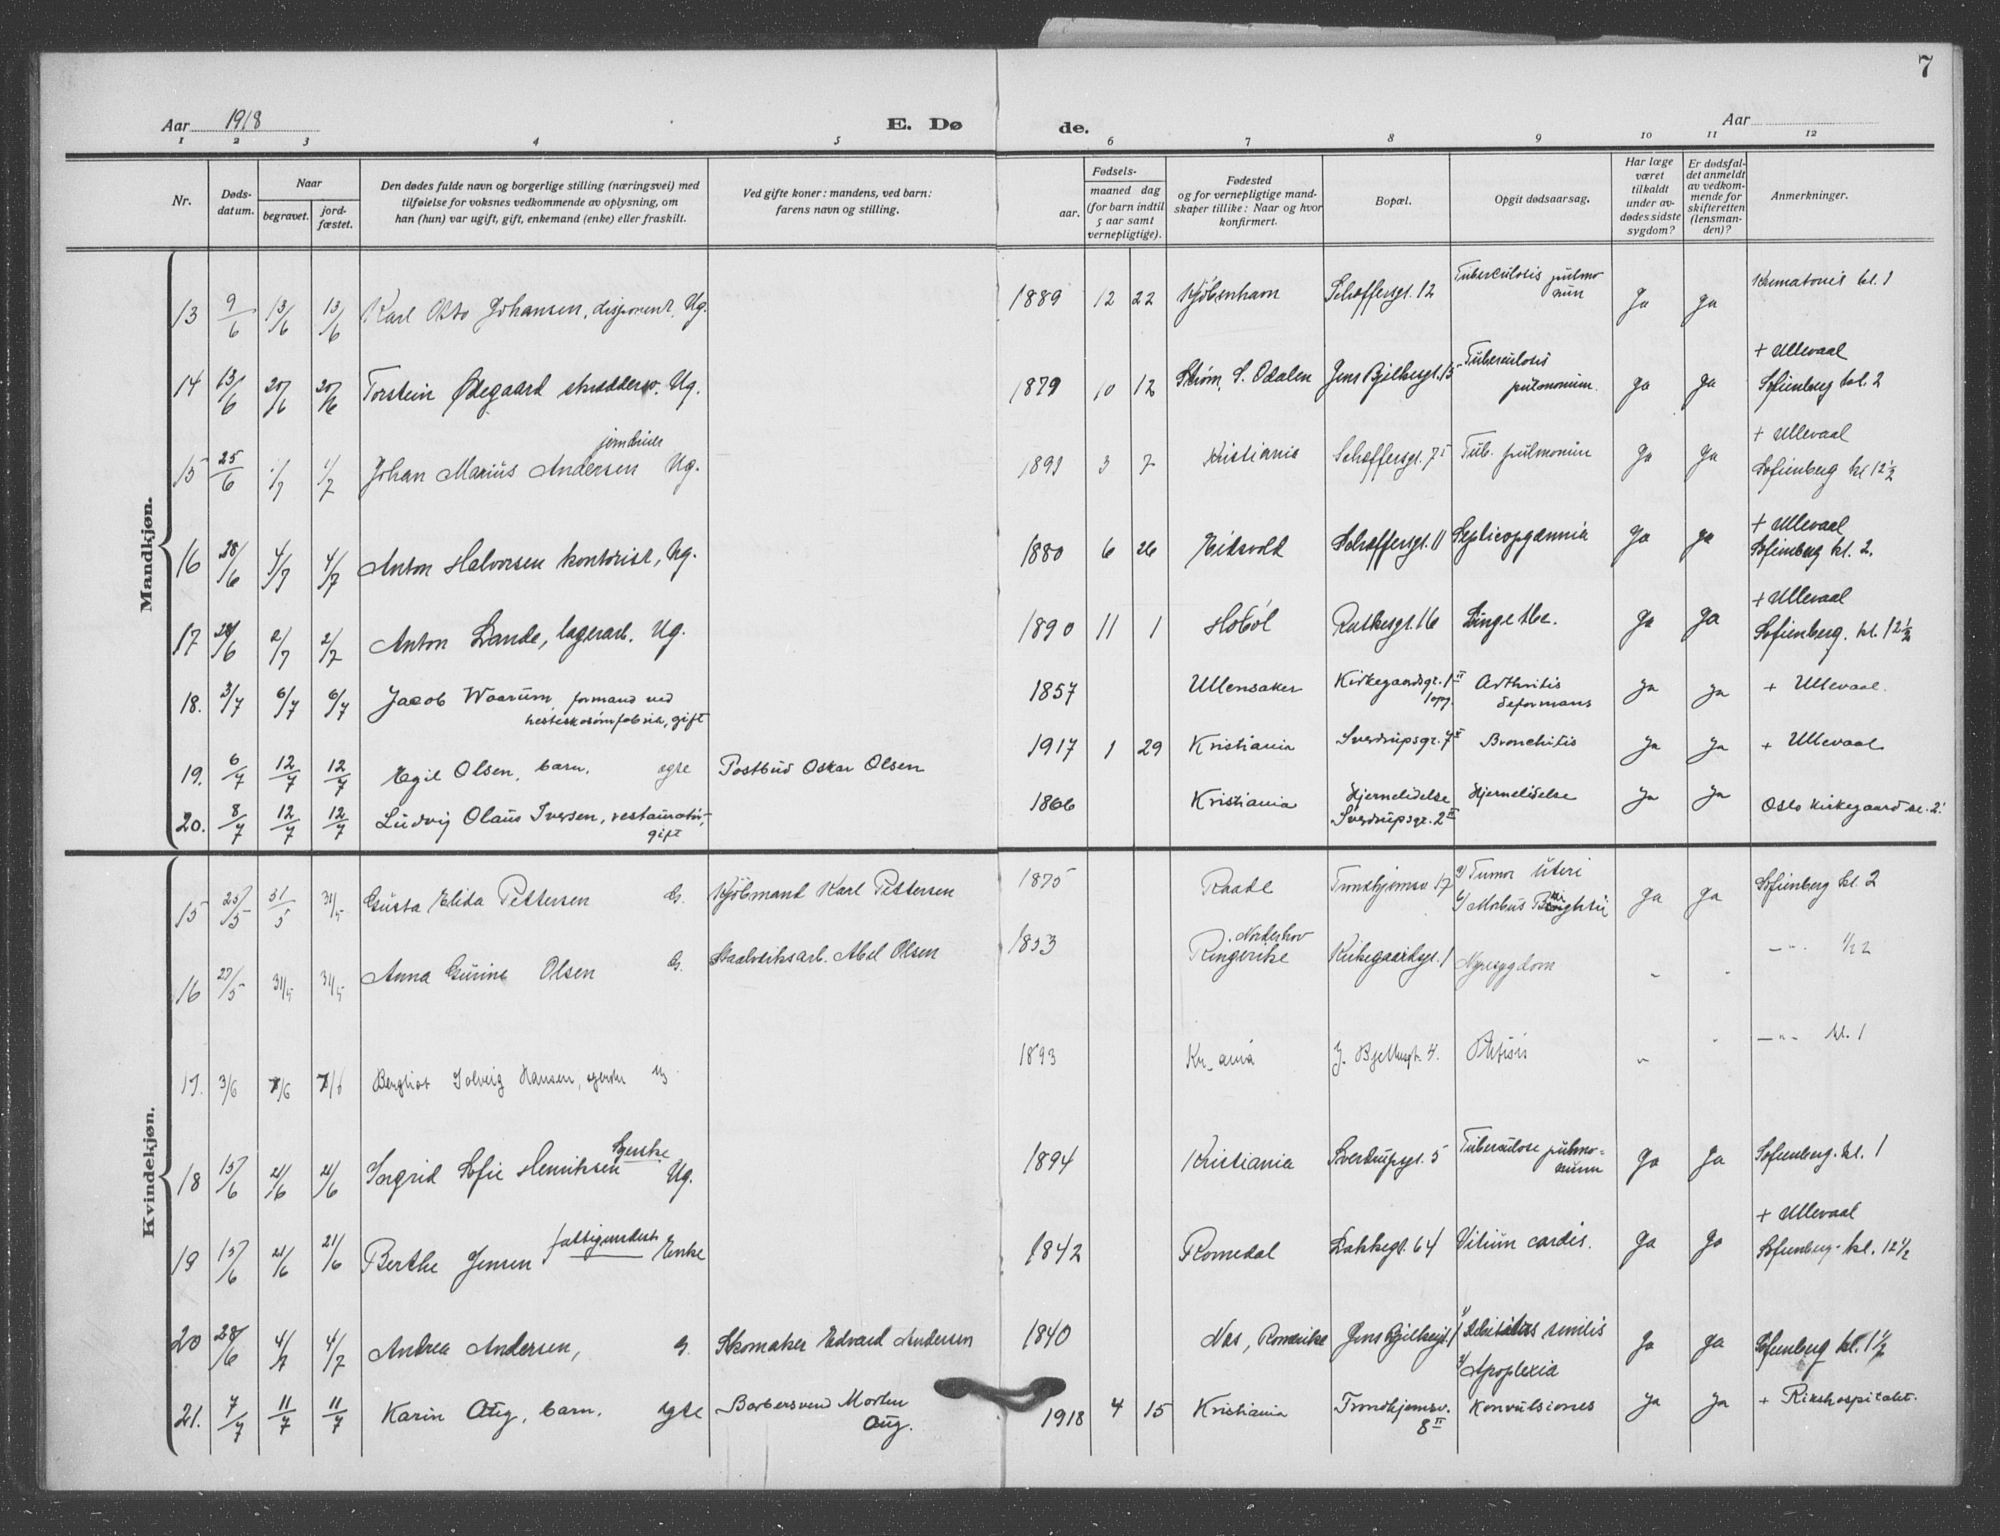 7
Aar 1918
E. Dø
de.
Aar
1 2 3 4 5 6 7 8 9 10 11 12
Nr.
Dødsdatum.
Naar
begravet.
jordfæstet.
Den dødes fulde navn og borgerlige stilling (næringsvei) med
tilføielse for voksnes vedkommende av oplysning, om
han (hun) var ugift, gift, enkemand (enke) eller fraskilt.
Ved gifte koner: mandens, ved barn:
farens navn og stilling.
Fødsels-
aar. maaned dag
(for barn indtil
5 aar samt
vernepligtige).
Fødested
og for vernepligtige mand-
skaper tillike: Naar og hvor
konfirmert.
Bopæl.
Opgit dødsaarsag.
Har læge
været
tilkaldt
under av-
dødes sidste
sygdom?
Er dødsfal-
det anmeldt
av vedkom-
mende for
skifteretten
(lensman-
den)?
Anmerkninger.
Mandkjøn.
13 9/6 13/6 13/6 Karl Otto Johansen, disponent, Ug. 1889 12 22 Kjøbenhavn Schøffersgt. 12 Tuberculosis pulmonum Ja Ja Krematoriet kl. 1
14 13/6 20/6 20/6 Torstein Ødegaard skræddersv. Ug. 1879 10 12 Strøm, S. Odalen Jens Bjelkesgt. 15 Tuberculosis pulmonum. Ja Ja + Ullevaal Sofienberg kl. 2
15 25/6 1/7 1/7 Johan Marius Andersen Ug. 1891 3 7 Kristiania Schøffersgt. 7 I Tub. pulmonum Ja Ja + Ullevaal Sofienberg kl 12 1/2
16 28/6 4/7 4/7 Anton Halvorsen kontorist, Ug. 1880 6 26 Eidsvold Schøffersgt. 11 Septicopyæmia Ja Ja + Ullevaal Sofienberg kl. 2.
17 28/6 2/7 2/7 Anton Lande, lagerarb. Ug. 1890 11 1 Høbøl Rathkesgt. 16 Lunge tbc. Ja Ja + Ullevaal Sofienberg. kl. 12 1/2
18. 3/7 6/7 6/7 Jacob Waarum, formand ved hesteskosømfabrik, gift 1857 Ullensaker Kirkegaardsgt. 1 II opg. Arthritis deformans Ja Ja + Ullevaal.
19. 6/7 12/7 12/7 Egil Olsen, barn. egte Postbud Oskar Olsen 1917 1 29 Kristiania Sverdrupsgt. 7 II Bronchitis Ja Ja + Ullevaal
20. 8/7 12/7 12/7 Ludvig Olaus Iversen, restauratør, gift 1866 Kristiania Hjernelidelse Sverdrupsgt. 2 II Hjernelidelse Ja Ja Oslo kirkegaard kl. 2.
Kvindekjøn.
15 25/5 31/5 31/5 Gusta Elida Pettersen G. Kjøbmand Karl Pettersen 1875 Raade Trondhjemsv 17 a/ Tumor uteri b/ Morbus Brightii Ja Ja Sofienberg kl. 2
16 27/5 31/5 31/5 Anna Gurine Olsen G. Staalverksarb. Abel Olsen 1853 Ringerike, Norderhov Kirkegaardsgt. 1 Nyresygdom " " —"— 1/2 2
17. 3/6 7/6 7/6 Bergliot Solveig Hansen, syerske Ug. 1893 Kr_ania J. Bjelkesgt. 4. Phtisis " " —"— kl. 1
18 15/6 21/6 21/6 Ingrid Sofie Henriksen Syerske Ug. 1894 Kristiania Sverdrupsgt. 5 Tuberculose pulmonum Ja Ja Sofienberg. kl. 1
19 15/6 21/6 21/6 Berthe Jensen fattigunderst. Enke 1842 Romedal Lakkegt. 64 Vitium cordis. Ja Ja + Ullevaal Sofienberg. kl. 12 1/2
20 28/6 4/7 4/7 Andrea Andersen, G. Skomaker Edvard Andersen 1840 Nes, Romerike Jens Bjelkesgt. 1/ Debilitas senilis 2/ Apoplexia Ja Ja Sofienberg kl. 1 1/2
21. 7/7 11/7 11/7 Karin Aug, barn. egte Barbersvend Morten Aug. 1918 4 15 Kristiania Trondhjemsv. 8 II Konvulsiones Ja Ja + Rikshospitalet.